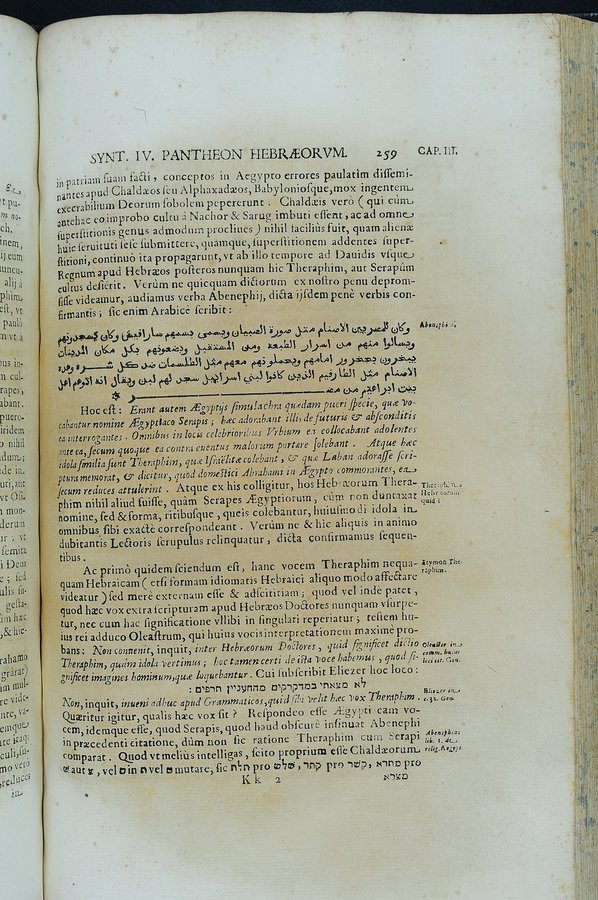 SYNT. IV. PANTHEON HEBRÆORVM. 259 CAP. III.
in patriam suam facti, conceptos in Aegypto errores paulatìm dissemi-
nantes apud Chaldæos seu Alphaxadæos, Babyloniosque, mox ingentem
execrabilium Deorum sobolem pepererunt. Chaldæis verò (qui cùm
antehac eo improbo cultu à Nachor & Sarug imbuti essent, ac ad omne
superstitionis genus admodum procliues) nihil facilius fuit, quam alienæ
huic seruituti sese submittere, quamque, superstitionem addentes super-
stitioni, continuò ita propagarunt, vt ab illo tempore ad Dauidis vsque
Regnum apud Hebræos posteros nunquam hic Theraphim, aut Serapùm
cultus desierit. Verùm ne quicquam dictorum ex nostro penu deprom-
sisse videamur, audiamus verba Abenephij, dicta ijsdem penè verbis con-
firmantis; sic enim Arabicè scribit:
وكان للمصريين الاصنام مثل صورة الصبيان ويسمى بسمهم سارافيش وكان يسجدونهم
ويسالوا منهم من اسرار الطبعه ومن المستقبل ويضعونهم بكل مكان المدينات
يبخرون بخور امامهم ويحملونهم معهم مثل الطلسمات ضد كل شر وهذه
الاصنام مثل الطارفيم الذين كانوا لبني اسراييل سجد لهم لبن ويقال انه
بيت ابراهيم من مصر
Abenephi'.
Hoc est: Erant autem Ægyptijs simulachra quædam pueri specie, quæ vo-
cabantur nomine Ægyptiaco Serapis; hæc adorabant illi, de futuris & absconditis
ea interrogantes. Omnibus in locis celebrioribus Vrbium ea collocabant adolentes
ante ea, secum quoque ea contra euentus malorum portare solebant. Atque hæc
idola similia sunt Theraphim, quæ Israëlitæ colebant, & quæ Laban adorasse scri-
ptura memorat, & dicitur, quod domestici Abrahami in Ægypto commorantes, ea
secum reduces attulerint. Atque ex his colligitur, hos Hebræorum Thera-
phim nihil aliud fuisse, quàm Serapes Ægyptiorum, cùm non duntaxat
nomine, sed & forma, ritibusque, queis colebantur, huiusmodi idola in
omnibus sibi exactè correspondeant. Verùm ne & hic aliquis in animo
dubitantis Lectoris scrupulus relinquatur, dicta confirmamus sequen-
tibus.
Theraphim
Hebræorum
quid?
Ac primò quidem sciendum est, hanc vocem Theraphim nequa-
quam Hebraicam (etsi formam idiomatis Hebraici aliquo modo affectare
videatur) sed merè externam esse & adscititiam; quod vel inde patet,
quod hæc vox extra scripturam apud Hebræos Doctores nunquam vsurpe-
tur, nec cum hac significatione vllibi in singulari reperiatur; testem hu-
ius rei adduco Oleastrum, qui huius vocis interpretationem maximè pro-
bans: Non conuenit, inquit, inter Hebræorum Doctores, quid significet dictio
Theraphim, quàm idola vertimus; hoc tamen certi de ista voce habemus, quod si-
gnificet imagines hominum, quæ loquebantur. Cui subscribit Eliezer hoc loco:
לא מצאתי במדקדקים מהתעניין תרפים :
Non, inquit, inueni adhuc apud Grammaticos, quid sibi velit hæc vox Theraphim.
Quæritur igitur, qualis hæc vox sit? Respondeo esse Ægyptiacam vo-
cem, idemque esse, quod Serapis, quod haud obscurè insinuat Abenephi
in præcedenti citatione, dùm non sic ratione Theraphim cum Serapi
comparat. Quod vt meliùs intelligas, scito proprium esse Chaldæorum
Etymon The-
raphim.
Oleaster in
comm. huius
loci in Gen.
Eliezer in
c.31. Gen.
Abenephius
lib. 1. de
relig. Ægypt.
K k 2